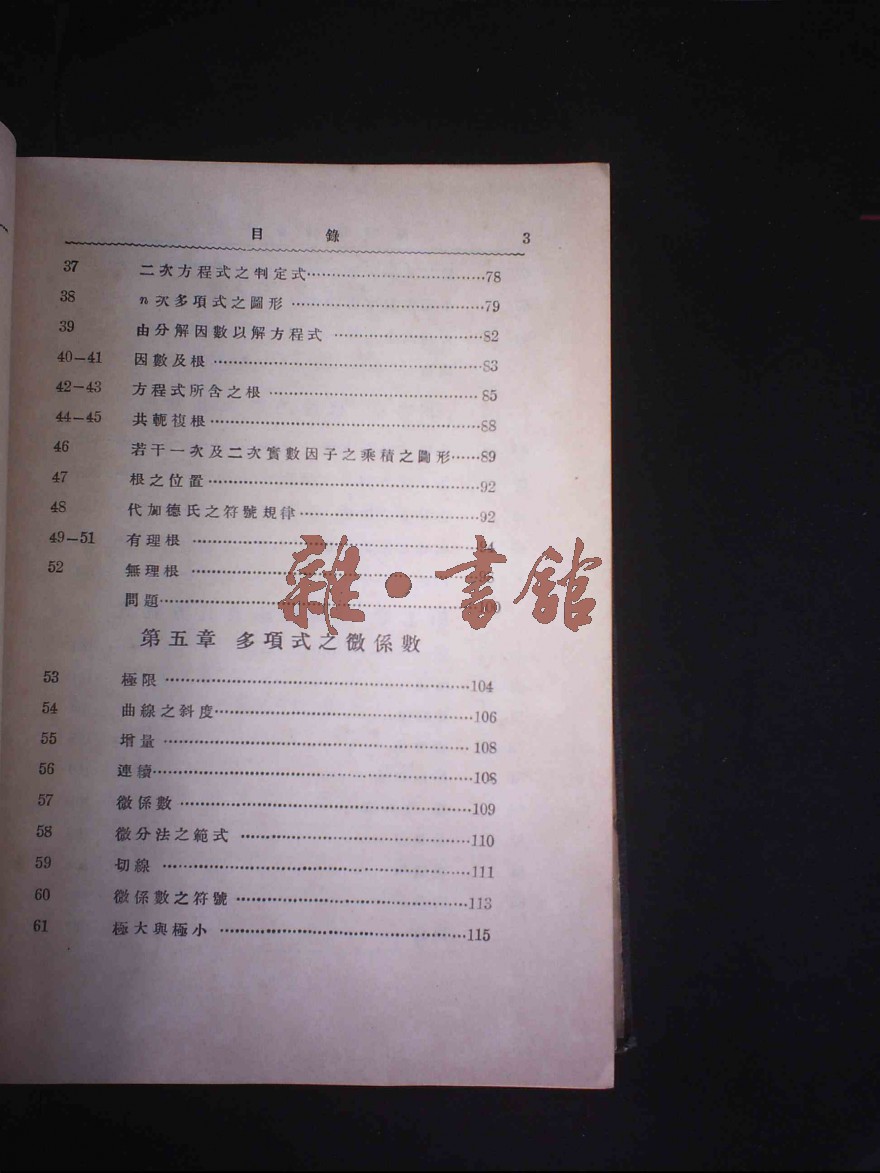 目錄 3
37 二次方程式之判定式……78
38 n次多項式之圖形……79
39 由分解因數以解方程式……82
40—41 因數及根……83
42—43 方程式所含之根……85
44—45 共軛複根……88
46 若干一次及二次實數因子之乘積之圖形……89
47 根之位置……92
48 代加德氏之符號規律……92
49—51 有理根……
52 無理根……
問題……100
雜·書館
第五章 多項式之微係數
53 極限……104
54 曲線之斜度……106
55 增量……108
56 連續……108
57 微係數……109
58 微分法之範式……110
59 切線……111
60 微係數之符號……113
61 極大與極小……115